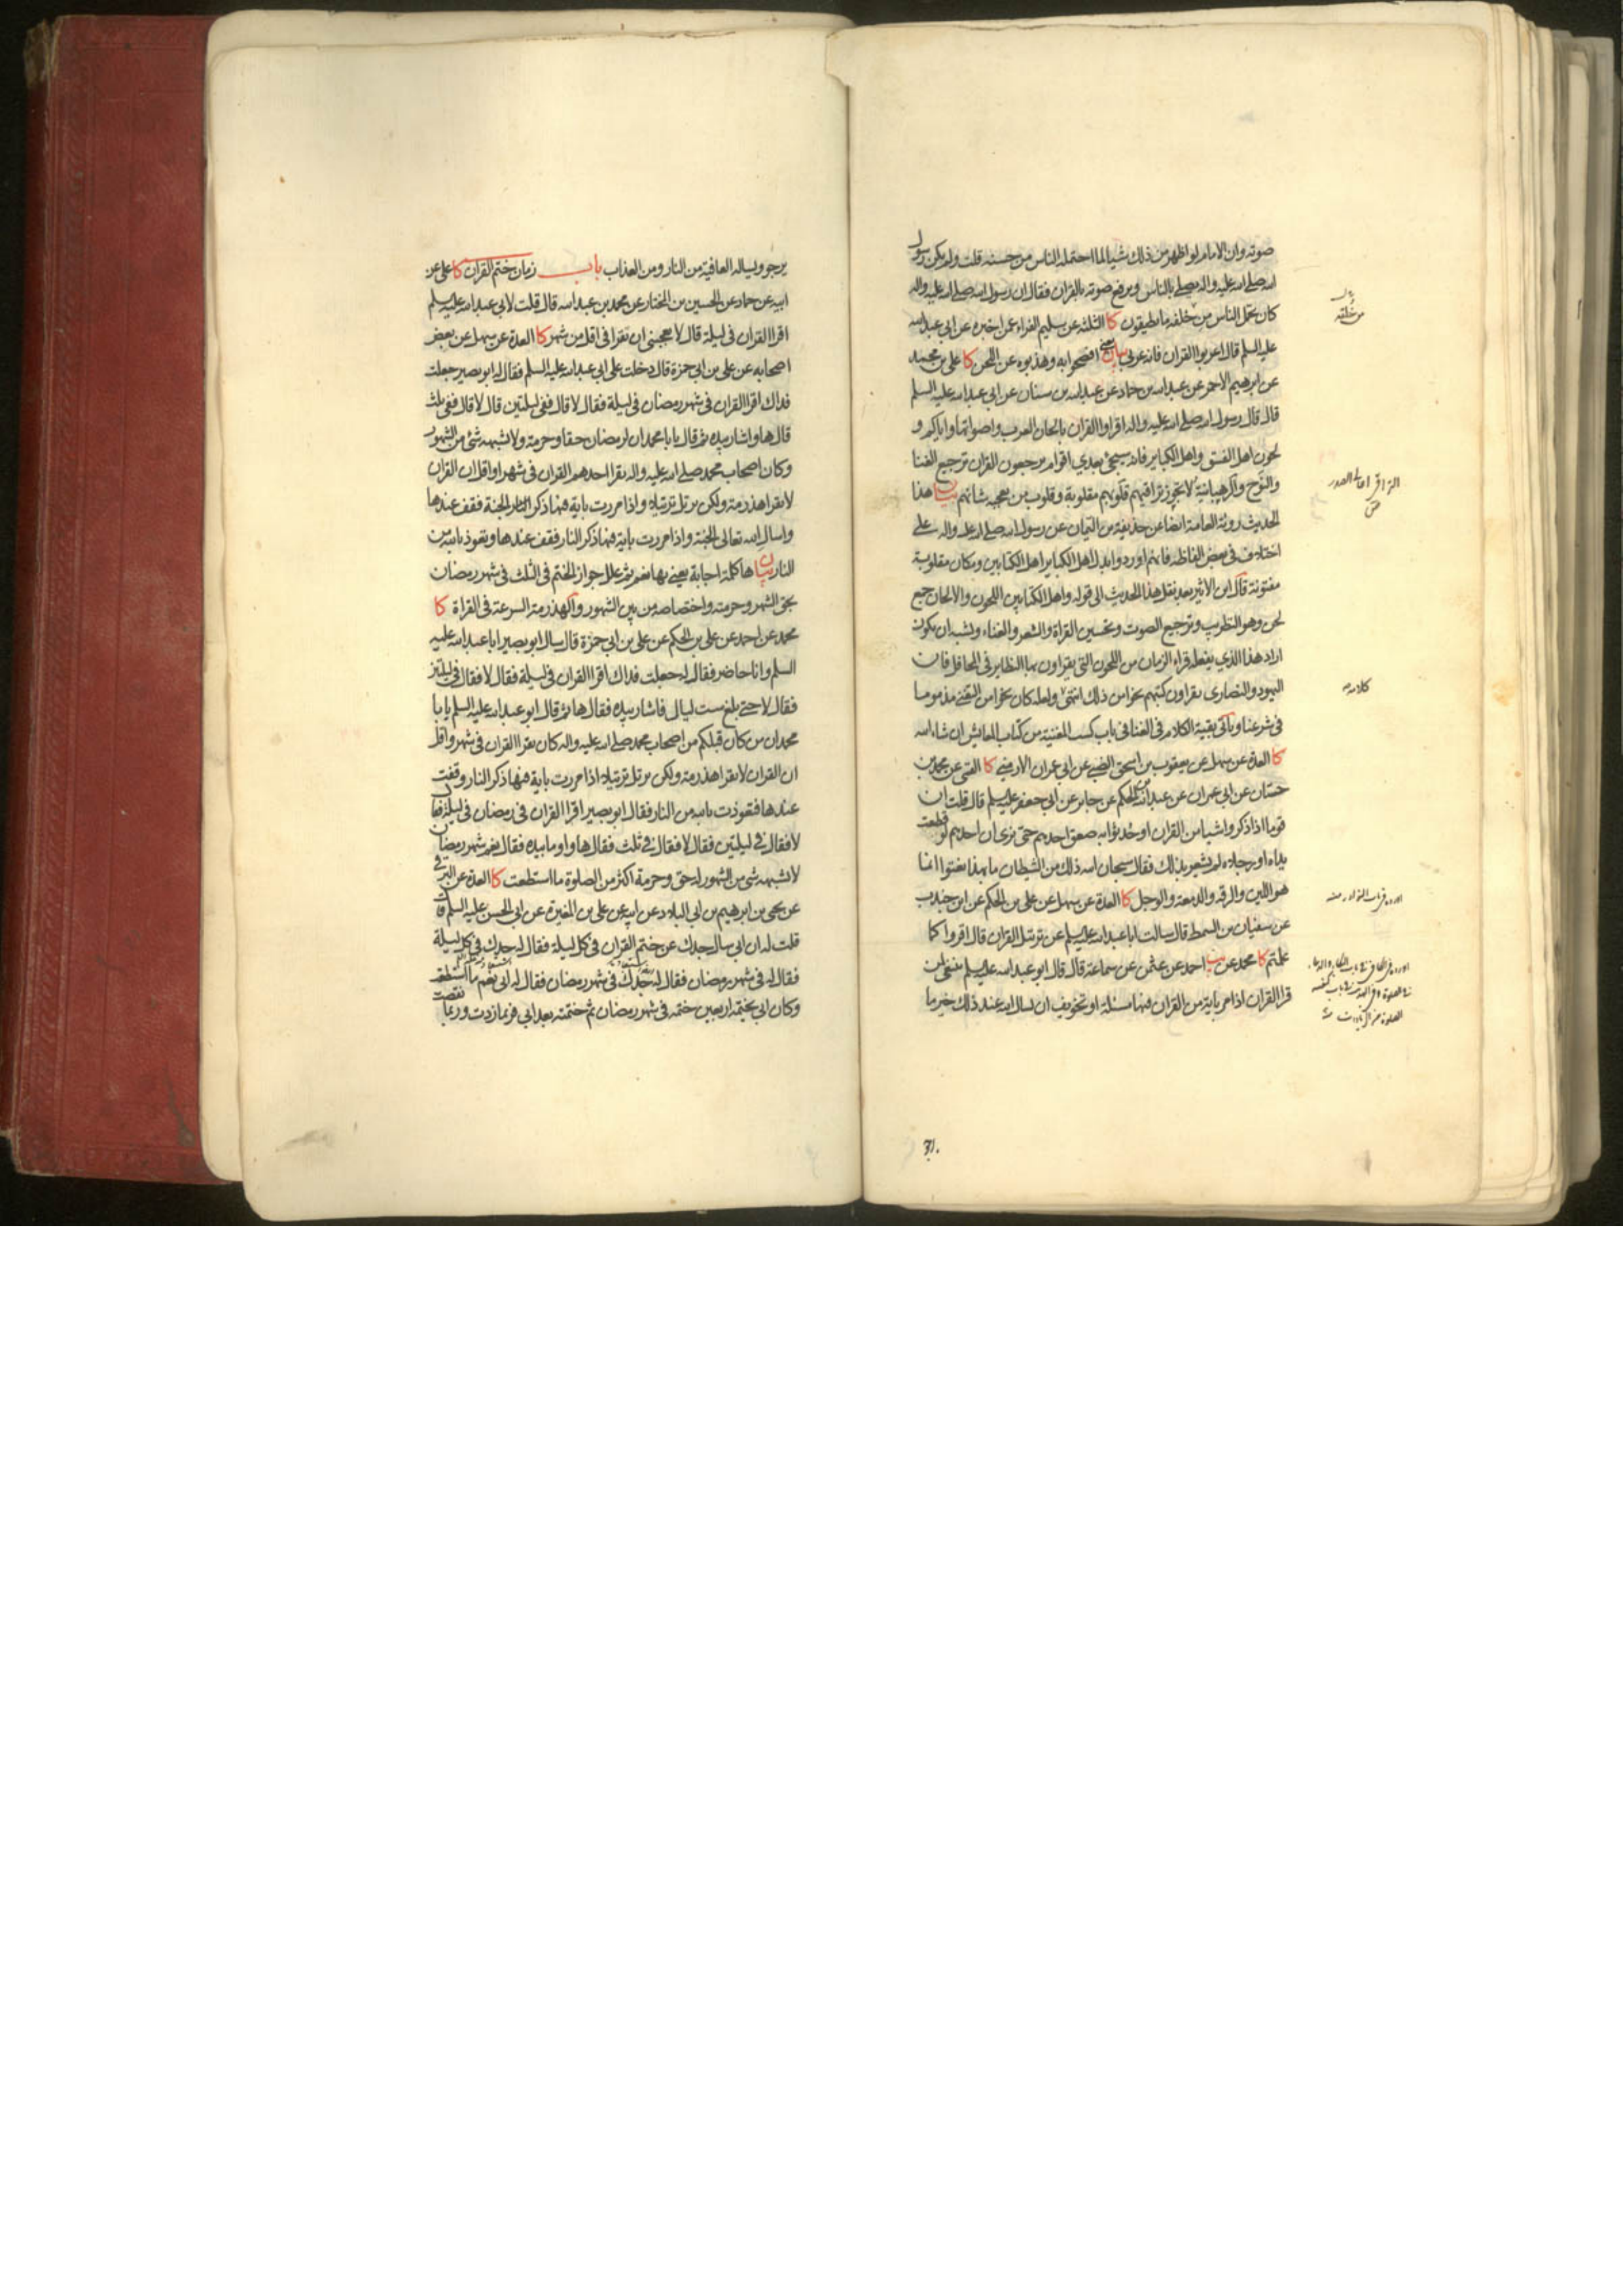 صوته وان الامام لو اظهر من ذلك شيئا لما احتمله الناس من حسنه قلت ولم يكن رسول
الله صلى الله عليه واله يصلي بالناس ويرفع صوته بالقران فقال ان رسول الله صلى الله عليه واله
كان يحمل الناس من خلفه ما يطيقون كا الثلثه عن سليم الفراء عمن اخبره عن ابي عبد الله
عليه السلم قال اعربوا القران فانه عربي بيان يعني افصحوا به وهذبوه عن اللحن كا علي بن محمد
عن ابرهيم الاحمر عن عبد الله بن حماد عن عبد الله بن سنان عن ابي عبد الله عليه السلم
قال قال رسول الله صلى الله عليه واله اقراوا القران بالحان العرب واصواتها واياكم و
لحون اهل الفسق واهل الكباير فانه سيجئ بعدي اقوام يرجعون القران ترجيع الغنا
والنوح والرهبانية لا يجوز تراقيهم قلوبهم مقلوبة وقلوب من يعجبه شانهم بيان هذا
الحديث روته العامة ايضا عن حذيفة بن اليمان عن رسول الله صلى الله عليه واله على
اختلاف في بعض الفاظه فانهم اوردوا بدل اهل الكباير اهل الكتابين ومكان مقلوبة
مفتونة قال ابن الاثير بعد نقل هذا الحديث الى قوله واهل الكتابين اللحون والالحان جمع
لحن وهو التطريب وترجيع الصوت وتحسين القراة والشعر والغناء ويشبه ان يكون
اراد هذا الذي يفعله قراء الزمان من اللحون التي يقراون بها النظاير في المحافل فان
اليهود والنصارى يقراون كتبهم نحوا من ذلك انتهى ولعله كان نحوا من التغني مذموما
في شرعنا وياتي بقية الكلام في الغنا في باب كسب المغنية من كتاب المعايش ان شاء الله
كا العدة عن سهل عن يعقوب بن اسحق الضبي عن ابي عمران الارمني كا القمي عن محمد بن
حسان عن ابي عمران عن عبد الله بن الحكم عن جابر عن ابي جعفر عليه السلم قال قلت ان
قوما اذا ذكروا شيئا من القران او حدثوا به صعق احدهم حتى نرى ان احدهم لو قطعت
يداه او رجلاه لم يشعر بذلك فقال سبحان الله ذلك من الشيطان ما بهذا نعتوا انما
هو اللين والرقه والدمعة والوجل كا العدة عن سهل عن علي بن الحكم عن ابن جندب
عن سفيان بن السمط قال سالت ابا عبد الله عليه السلم عن ترتيل القران قال اقروا كما
علمتم كا محمد عن يب احمد عن عثمن عن سماعة قال قال ابو عبد الله عليه السلم ينبغي لمن
قرا القران اذا مر باية من القران فيها مسئلة او تخويف ان يسال الله عند ذلك خير ما
يرجو ويساله العافية من النار ومن العذاب باب زمان ختم القران كا علي عن
ابيه عن حماد عن الحسين بن المختار عن محمد بن عبد الله قال قلت لابي عبد الله عليه السلم
اقرا القران في ليلة قال لا يعجبني ان تقرا في اقل من شهر كا العدة عن سهل عن بعض
اصحابه عن علي بن ابي حمزة قال دخلت على ابي عبد الله عليه السلم فقال له ابو بصير جعلت
فداك اقرا القران في شهر رمضان في ليلة فقال لا قال ففي ليلتين قال لا قال ففي ثلث
قال ها واشار بيده ثم قال يا با محمد ان لرمضان حقا وحرمة ولا يشبهه شئ من الشهور
وكان اصحاب محمد صلى الله عليه واله يقرا احدهم القران في شهر او اقل ان القران
لا يقرا هذرمة ولكن يرتل ترتيلا واذا مررت باية فيها ذكر الجنة فقف عندها
واسال الله تعالى الجنة واذا مررت باية فيها ذكر النار فقف عندها وتعوذ بالله من
النار بيان ها كلمة اجابة يعني بها نعم ثم علل جواز الختم في الثلث في شهر رمضان
بحق الشهر وحرمته واختصاصه من بين الشهور والهذرمة السرعة في القراة كا
محمد عن احمد عن علي بن الحكم عن علي بن ابي حمزة قال سال ابو بصير ابا عبد الله عليه
السلم وانا حاضر فقال له جعلت فداك اقرا القران في ليلة فقال لا فقال في ليلتين
فقال لا حتى بلغ ست ليال فاشار بيده فقال ها ثم قال ابو عبد الله عليه السلم يا با
محمد ان من كان قبلكم من اصحاب محمد صلى الله عليه واله كان يقرا القران في شهر واقل
ان القران لا يقرا هذرمة ولكن يرتل ترتيلا اذا مررت باية فيها ذكر النار وقفت
عندها فتعوذت بالله من النار فقال ابو بصير اقرا القران في رمضان في ليلة فقال
لا فقال في ليلتين فقال لا فقال في ثلث فقال ها واوما بيده فقال نعم شهر رمضان
لا يشبهه شئ من الشهور له حق وحرمة اكثر من الصلوة ما استطعت كا العدة عن البرقي
عن يحيى بن ابرهيم بن ابي البلاد عن ابيه عن علي بن المغيرة عن ابي الحسن عليه السلم قال
قلت له ان ابي سال جدك عن ختم القران في كل ليلة فقال له جدك في كل ليلة
فقال له في شهر رمضان فقال له جدك في شهر رمضان فقال له ابي نعم ما استطعت
وكان ابي يختمه اربعين ختمة في شهر رمضان ثم ختمته بعد ابي فربما زدت وربما نقصت